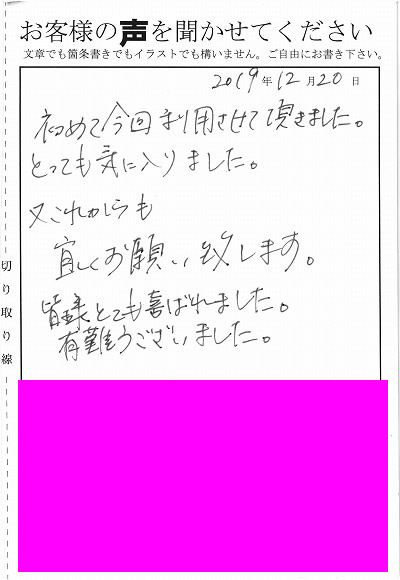 お客様の声を聞かせてください
文章でも箇条書きでもイラストでも構いません。ご自由にお書き下さい。
2019年12月20日
初めて今回利用させて頂きました。
とっても気に入りました。
又これからも
宜しくお願い致します。
皆様とても喜ばれました。
有難うございました。
切り取り線